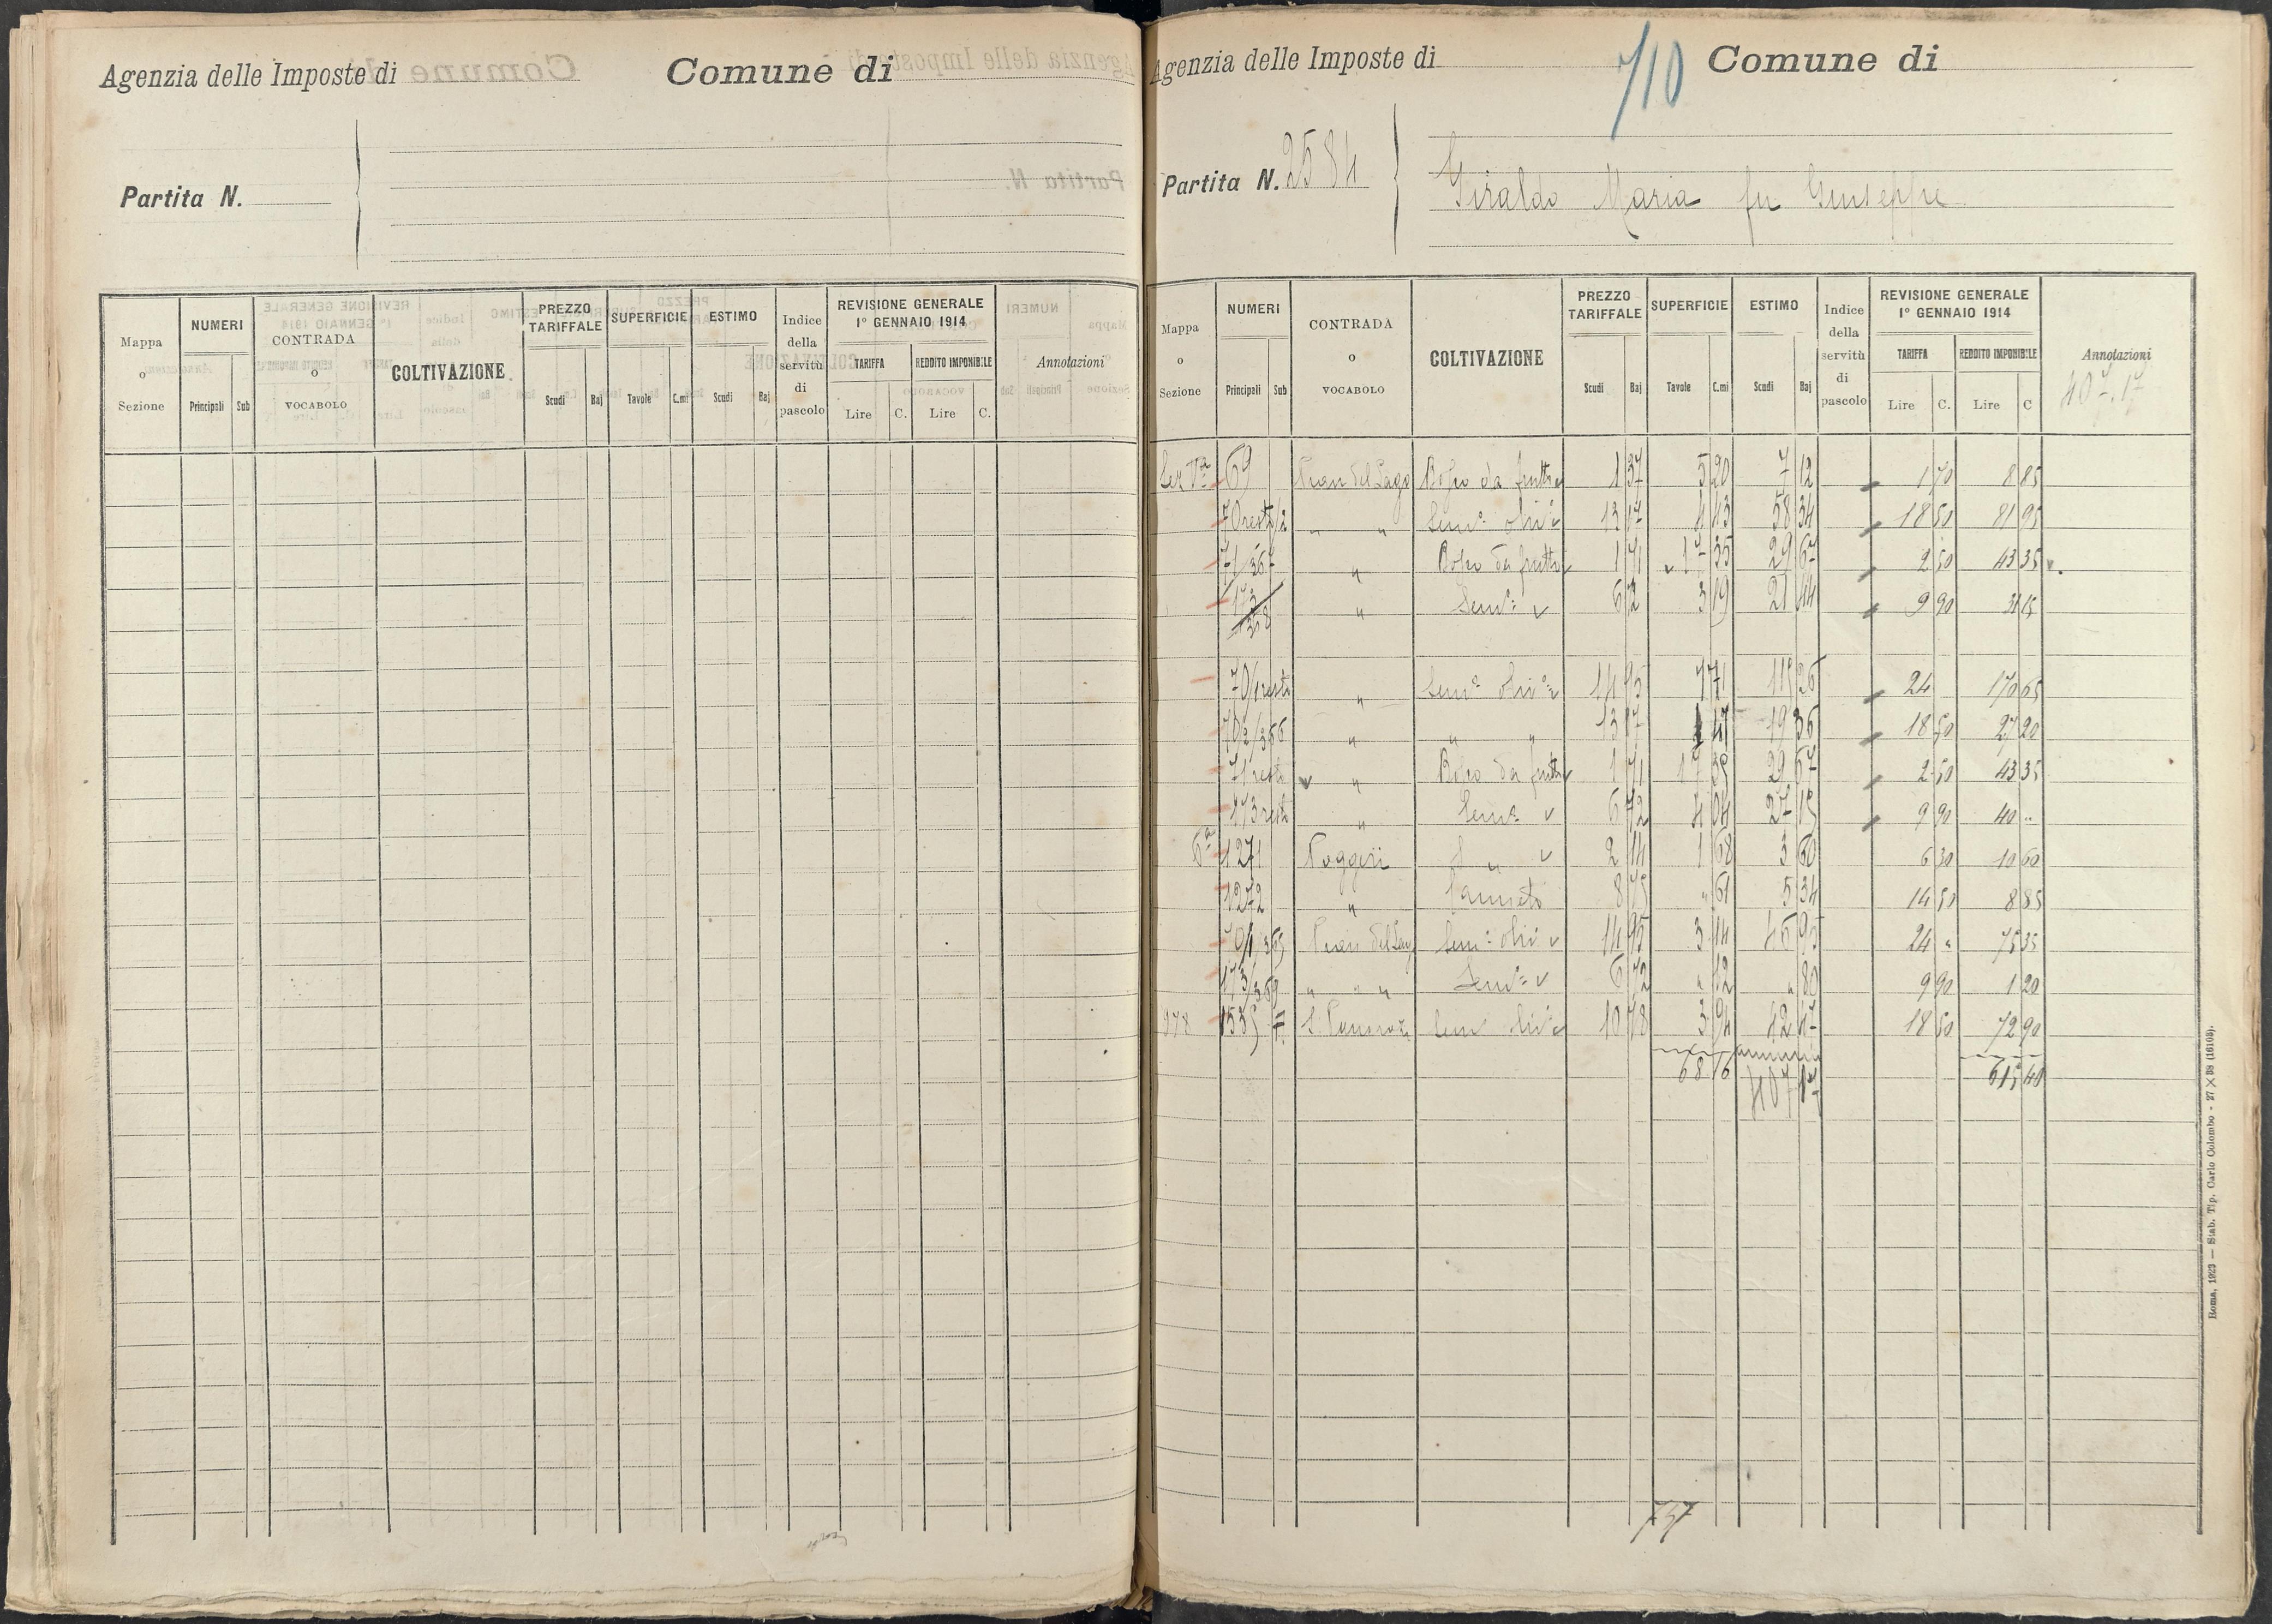 Agenzia delle Imposte di Comune di
Partita N.
Mappa o Sezione NUMERI Principali Sub CONTRADA O VOCABOLO COLTIVAZIONE PREZZO TARIFFALE Scudi Baj SUPERFICIE Tavole C.mi ESTIMO Scudi Baj Indice della servitù di pascolo REVISIONE GENERALE 1º GENNAIO 1914 TARIFFA Lire C. REDDITO IMPONIBILE Lire C. Annotazioni
Agenzia delle Imposte di 710 Comune di
Partita N. 2584 Giraldo Maria fu Giuseppe
Mappa o Sezione NUMERI Principali Sub CONTRADA O VOCABOLO COLTIVAZIONE PREZZO TARIFFALE Scudi Baj SUPERFICIE Tavole C.mi ESTIMO Scudi Baj Indice della servitù di pascolo REVISIONE GENERALE 1º GENNAIO 1914 TARIFFA Lire C. REDDITO IMPONIBILE Lire C Annotazioni
407.17
69 Pian del Lago Bosco da frutto 1 37 5 20 7 12 1 70 8 85
70 resto/2 " " Semo olivo 13 17 4 43 58 34 18 50 81 95
71/367 " Bosco da frutto 1 71 17 35 29 67 2 50 43 35
" Semo 6 72 3 19 21 44 9 90 31 15
70/1 resto " Semo olivo 14 95 7 71 115 26 24 170 65
70 2/366 " " " 13 17 1 47 19 36 18 50 27 20
71 resto " Bosco da frutto 1 71 17 35 29 67 2 50 43 35
173 resto " Semo 6 72 4 04 27 15 9 90 40 "
6a 1271 Poggeri " 2 14 1 68 3 60 6 30 10 60
1272 " Canneto 8 75 " 61 5 34 14 50 8 85
70/1 365 Pian del Lago Semo olivo 14 95 3 14 46 95 24 " 75 35
173/369 " " " Semo 6 72 " 12 " 80 9 90 1 20
978 1535 Sem olivo 10 78 3 94 42 47 18 50 72 90
68 16 407 17 615 40
757
Roma, 1923 — Stab. Tip. Carlo Colombo - 27 × 38 (16108).